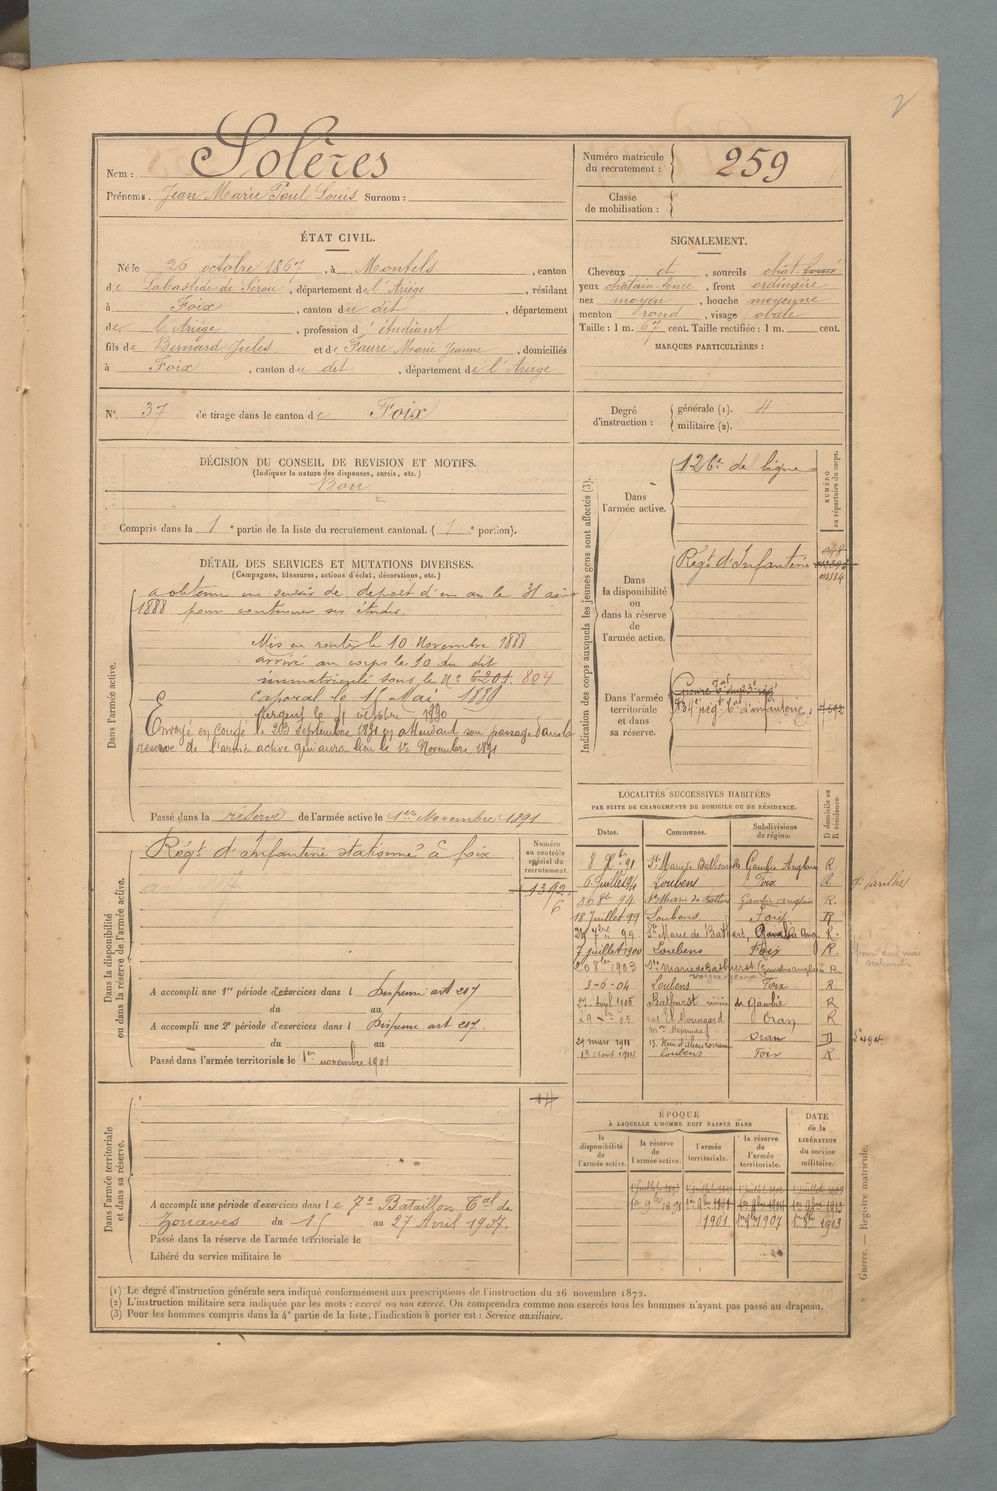 2
Nom : Solères
Prénoms. Jean Marie Paul Louis Surnom :
Numéro matricule du recrutement : 259
Classe de mobilisation :
ÉTAT CIVIL.
Né le 26 octobre 1867, à Montels, canton
de Labastide de Serou, département de l'Ariège, résidant
à Foix, canton du dit, département
de l'Ariège, profession d'étudiant
fils de Bernard Jules et de Faure Marie Jeanne, domiciliés
à Foix, canton du dit, département de l'Ariège
SIGNALEMENT.
Cheveux et, sourcils chat. foncé
yeux chatain fonce, front ordinaire
nez moyen, bouche moyenne
menton rond, visage ovale
Taille : 1 m. 67 cent. Taille rectifiée : 1 m. cent.
MARQUES PARTICULIÈRES :
N° 37 de tirage dans le canton de Foix
Degré d'instruction : générale (1). 4
militaire (2).
DÉCISION DU CONSEIL DE REVISION ET MOTIFS.
(Indiquer la nature des dispenses, sursis, etc.)
Bon
Compris dans la 1e partie de la liste du recrutement cantonal. (1e portion).
DÉTAIL DES SERVICES ET MUTATIONS DIVERSES.
(Campagnes, blessures, actions d'éclat, décorations, etc.)
Dans l'armée active.
a obtenu un sursis de depart d'un an le 31 aout
1888 pour continuer ses études.
Mis en route le 10 Novembre 1888
arrivé au corps le 10 du dit
immatriculé sous le N° 6201. 804
Caporal le 15 Mai 1889
Sergent le 1 octobre 1890
Envoyé en congé le 23 septembre 1891 en attendant son passage dans la
reserve de l'armée active qui aura lieu le 1er Novembre 1891
Passé dans la réserve de l'armée active le 1er Novembre 1891
Indication des corps auxquels les jeunes gens sont affectés (3).
NUMÉRO au répertoire du corps.
Dans l'armée active.
126e de ligne
Dans la disponibilité ou dans la réserve de l'armée active.
Régt d'Infanterie
Dans l'armée territoriale et dans sa réserve.
134e régt tal d'infanterie
Dans la disponibilité ou dans la réserve de l'armée active.
Régt d'Infanterie stationné à foix
Numéro au contrôle spécial du recrutement.
1392
6
A accompli une 1re période d'exercices dans l Dispense art 207
du au
A accompli une 2e période d'exercices dans l Dispense art 207.
du au
Passé dans l'armée territoriale le 1er novembre 1901
LOCALITÉS SUCCESSIVES HABITÉES
PAR SUITE DE CHANGEMENTS DE DOMICILE OU DE RÉSIDENCE.
Dates. Communes. Subdivisions de région. D domicile ou R résidence.
8 Xbre 91 Ste Marie Bathurst Gambie Anglaise R
6 Juillet 94 Loubens Foix R
30 8bre 94 Ste Marie de Bathurst Gambie anglaise R.
18 Juillet 99 Loubens. Foix R
99 Ste Marie de Bathurst, Gambie Ang. R.
7 juillet 1900 Loubens Foix R.
8bre 1903 Ste Marie de Bathurst Gambie anglaise R
3-6-04 Loubens Foix R.
27 Avril 1905 Bathurst rivière de Gambie R
29 05 rue El Moungard Oran R
29 mars 1911 Oran D
13 aout 1911 Loubens Foix R
Dans l'armée territoriale et dans sa réserve.
A accompli une période d'exercices dans le 7e Bataillon Tal de
Zouaves du 15 au 27 Avril 1907.
Passé dans la réserve de l'armée territoriale le
Libéré du service militaire le
ÉPOQUE
À LAQUELLE L'HOMME DOIT PASSER DANS
la disponibilité de l'armée active. la réserve de l'armée active. l'armée territoriale. la réserve de l'armée territoriale.
DATE de la LIBÉRATION du service militaire.
1er 9bre 1891
1901 1907 1913
Guerre. — Registre matricule.
(1) Le degré d'instruction générale sera indiqué conformément aux prescriptions de l'instruction du 26 novembre 1872.
(2) L'instruction militaire sera indiquée par les mots : exercé ou non exercé. On comprendra comme non exercés tous les hommes n'ayant pas passé au drapeau.
(3) Pour les hommes compris dans la 4e partie de la liste, l'indication à porter est : Service auxiliaire.